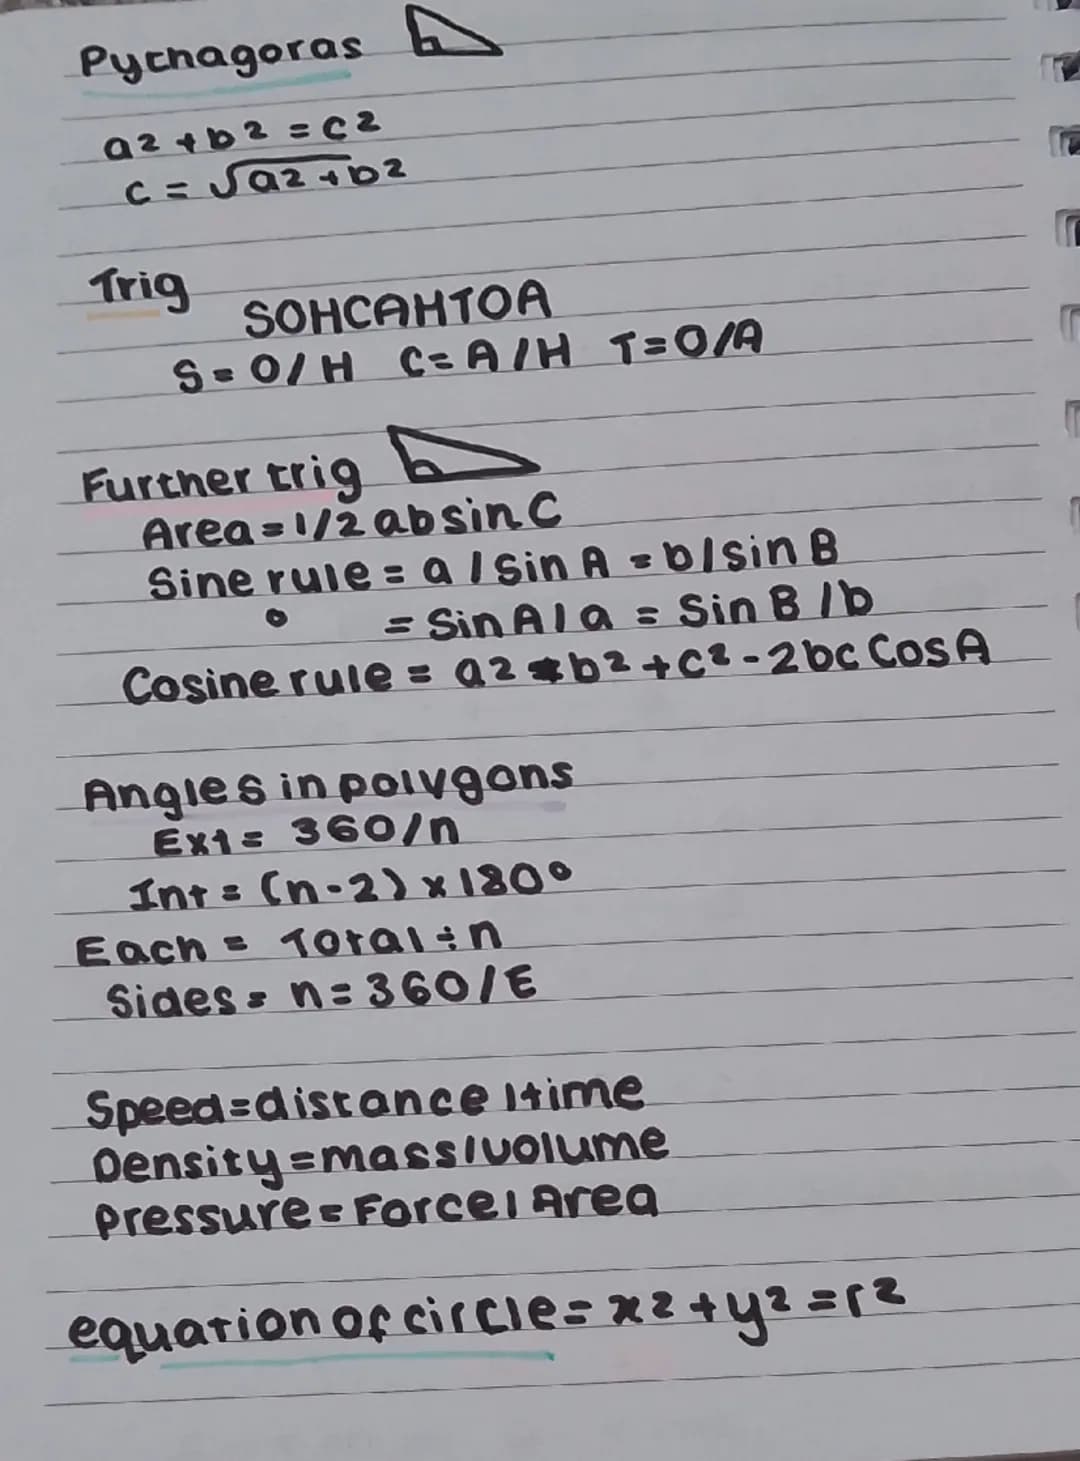 Pythagoras
a2+b2=c2
c=√a2+b2
Trig
SOHCAHTOA
S=O/H C=A/H T=O/A
Further trig
Area=1/2absinC
Sine rule=a/sin A=b/sin B
=Sin A/a=Sin B/b
Cosine rule=a2=b2+c2-2bc Cos A
Angles in polygons
Ext=360/n
Int=(n-2)×180°
Each=Total÷n
Sides=n=360/E
Speed=distance/time
Density=mass/volume
Pressure=Force/Area
equation of circle=x2+y2=r2